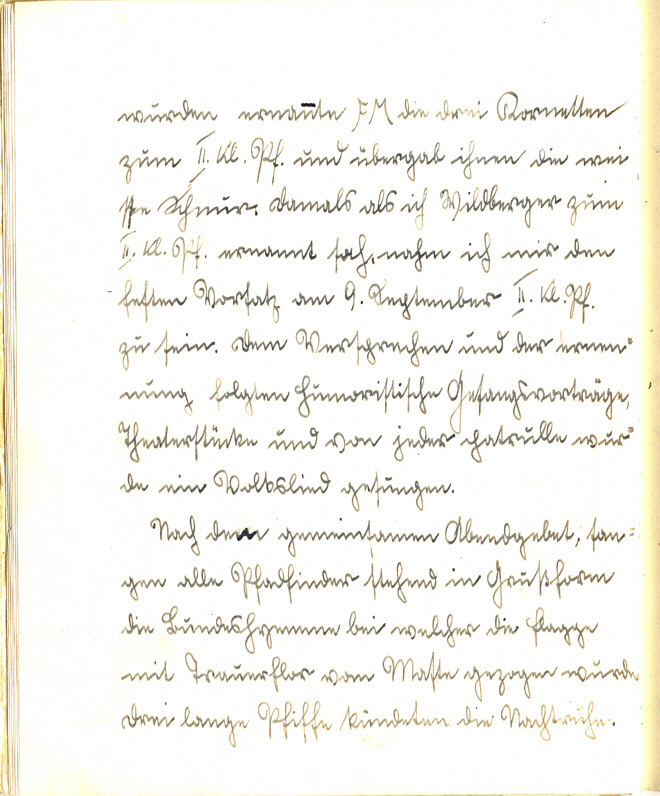 wurden ernannte FM die drei Kornetten
zum II. Kl. Pf. und übergab ihnen die wei
sse Schnur. Damals als ich Wildberger zum
II. Kl. Pf. ernannt sah, nahm ich mir den
festen Vorsatz am 9. September II. Kl. Pf.
zu sein. Dem Versprechen und der ernen=
nung folgten humoristische Gesangsvorträge,
Theaterstücke und von jeder patrulle wur=
de ein Volkslied gesungen.
Nach dem gemeinsamen Abendgebet, san=
gen alle Pfadfinder stehend in Grußform
die Bundeshymne bei welcher die Flagge
mit Trauerflor vom Maste gezogen wurde
Drei lange Pfiffe kündeten die Nachtruhe.